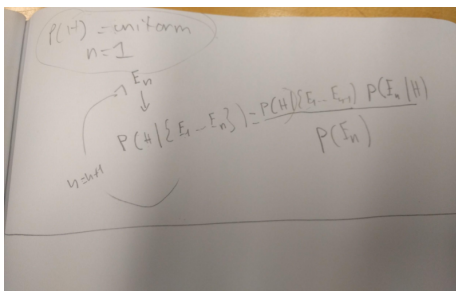 P(H) = uniform
n=1
E_n
↓
P(H|{E_1...E_n}) = P(H|{E_1...E_{n-1}}) P(E_n|H) / P(E_n)
n=n+1